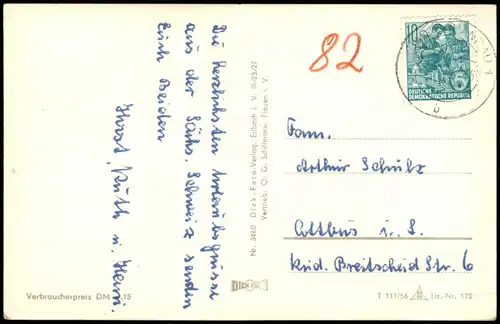 Die herzlichsten Urlaubsgrüsse
aus der Sächs. Schweiz senden
Euch Beiden
Horst, Ruth u. Heini.
82
10
DEUTSCHE
DEMOKRATISCHE REPUBLIK
Fam.
Arthur Schulz
Cottbus i. L.
Rud. Breitscheid Str. 6
Nr. 3460 Dick-Foto-Verlag, Erlbach i. V. III/23/27
Vertrieb O. G. Schillmann, Plauen i. V.
DICK
Verbraucherpreis DM 15
T 111/56 Etr.-Nr. 172